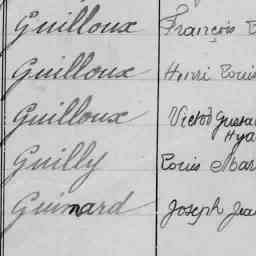 Guilloux François
Guilloux Henri Louis
Guilloux Victor Gusta
Hya
Guilly Louis Mar
Guimard Joseph Jea